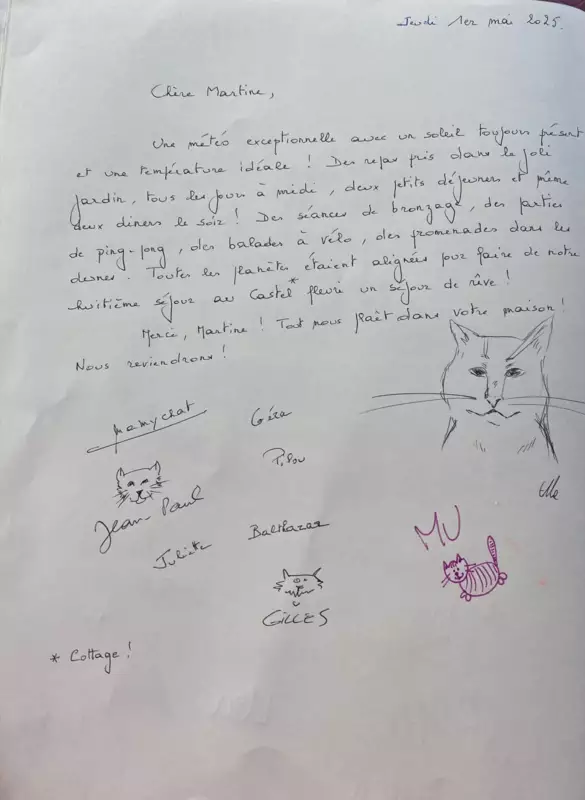 Jeudi 1er mai 2025.
Chère Martine,
Une météo exceptionnelle avec un soleil toujours présent
et une température idéale ! Des repas pris dans le joli
jardin, tous les jours à midi, deux petits déjeuners et même
deux diners le soir ! Des séances de bronzage, des parties
de ping-pong, des balades à vélo, des promenades dans les
dunes. Toutes les planètes étaient alignées pour faire de notre
huitième séjour au Castel* fleuri un séjour de rêve !
Merci, Martine ! Tout nous plaît dans votre maison !
Nous reviendrons !
mamychat Géra
Pilou
Jean Paul
Juliette Balthazar MU
GILLES
* Cottage !